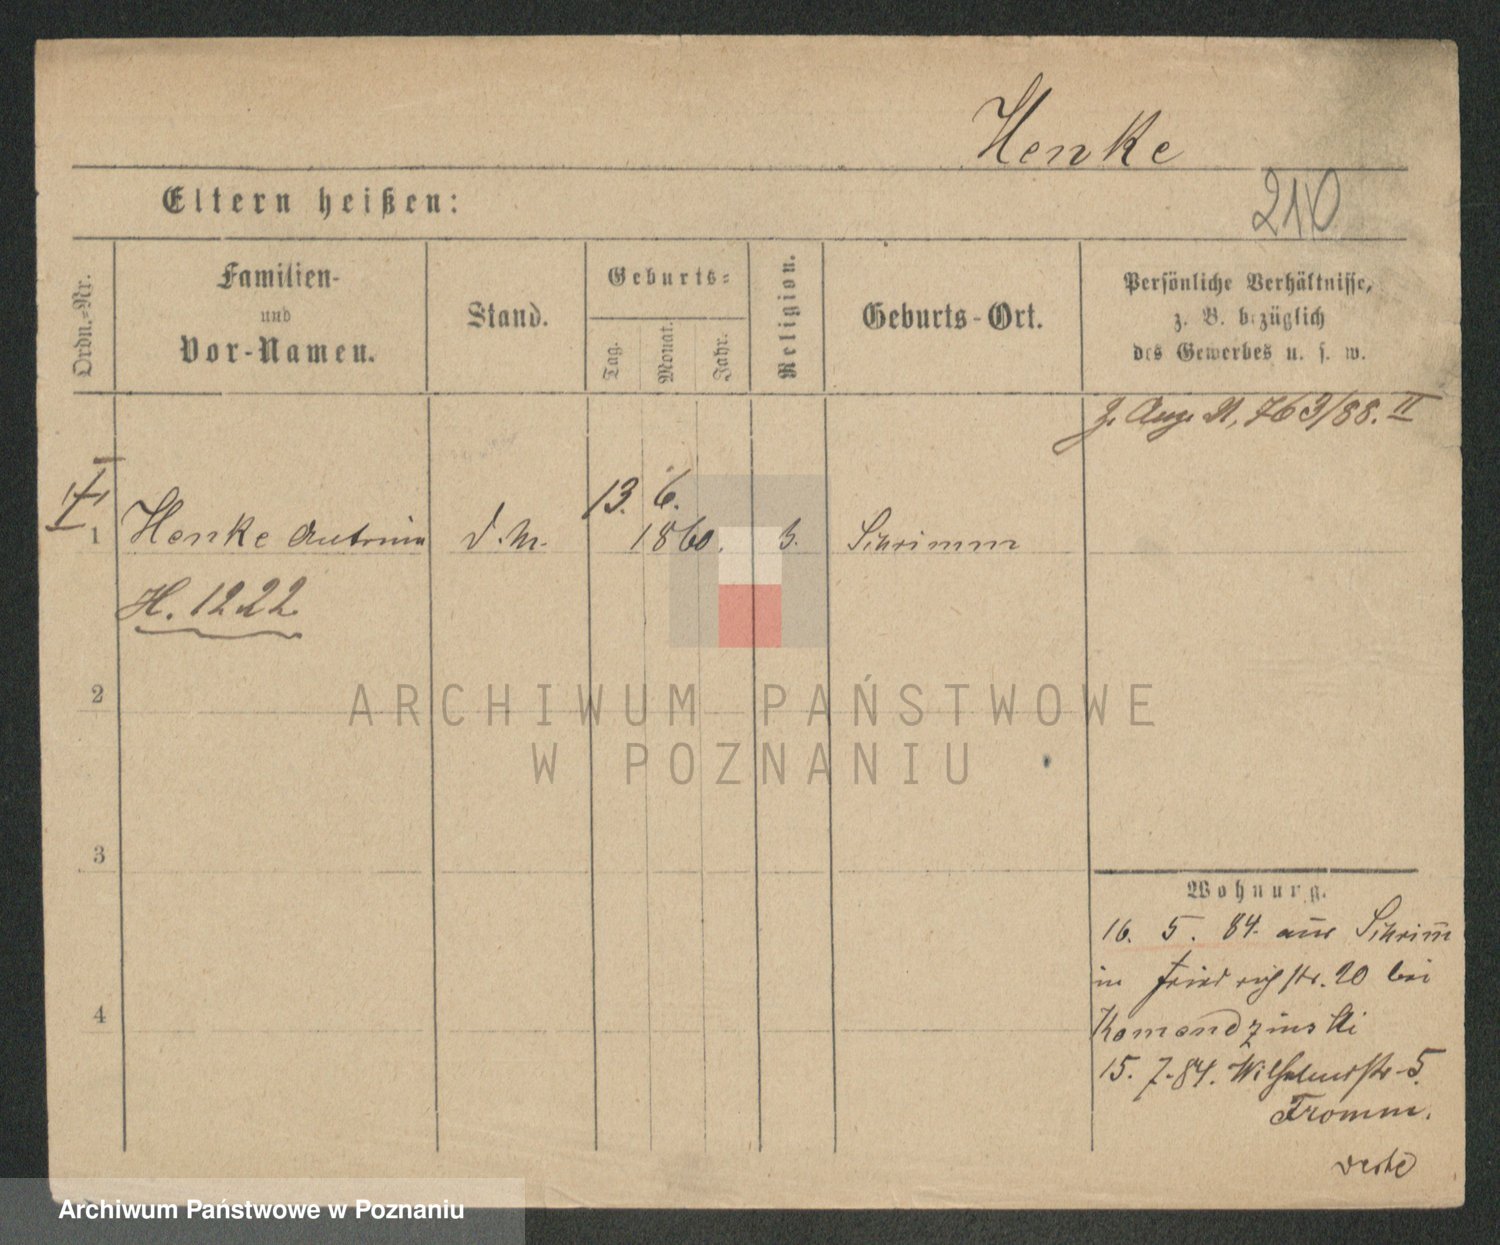 Henke
210
Eltern heißen:
Ordn.-Nr.
Familien-
und
Vor-Namen.
Stand.
Geburts-
Tag.
Monat.
Jahr.
Religion.
Geburts-Ort.
Persönliche Verhältnisse,
z. B. bezüglich
des Gewerbes u. s. w.
763/88. II
13. 6.
1 Henke d. M. 1860. Schrimm
H. 1222
2
ARCHIWUM PAŃSTWOWE
W POZNANIU
3
Wohnung.
16. 5. 84. aus Schrim̄
in Friedrichstr. 20 bei
Komendzinski
4
15. 7. 84. Wilhelmstr. 5.
Fromm.
Archiwum Państwowe w Poznaniu